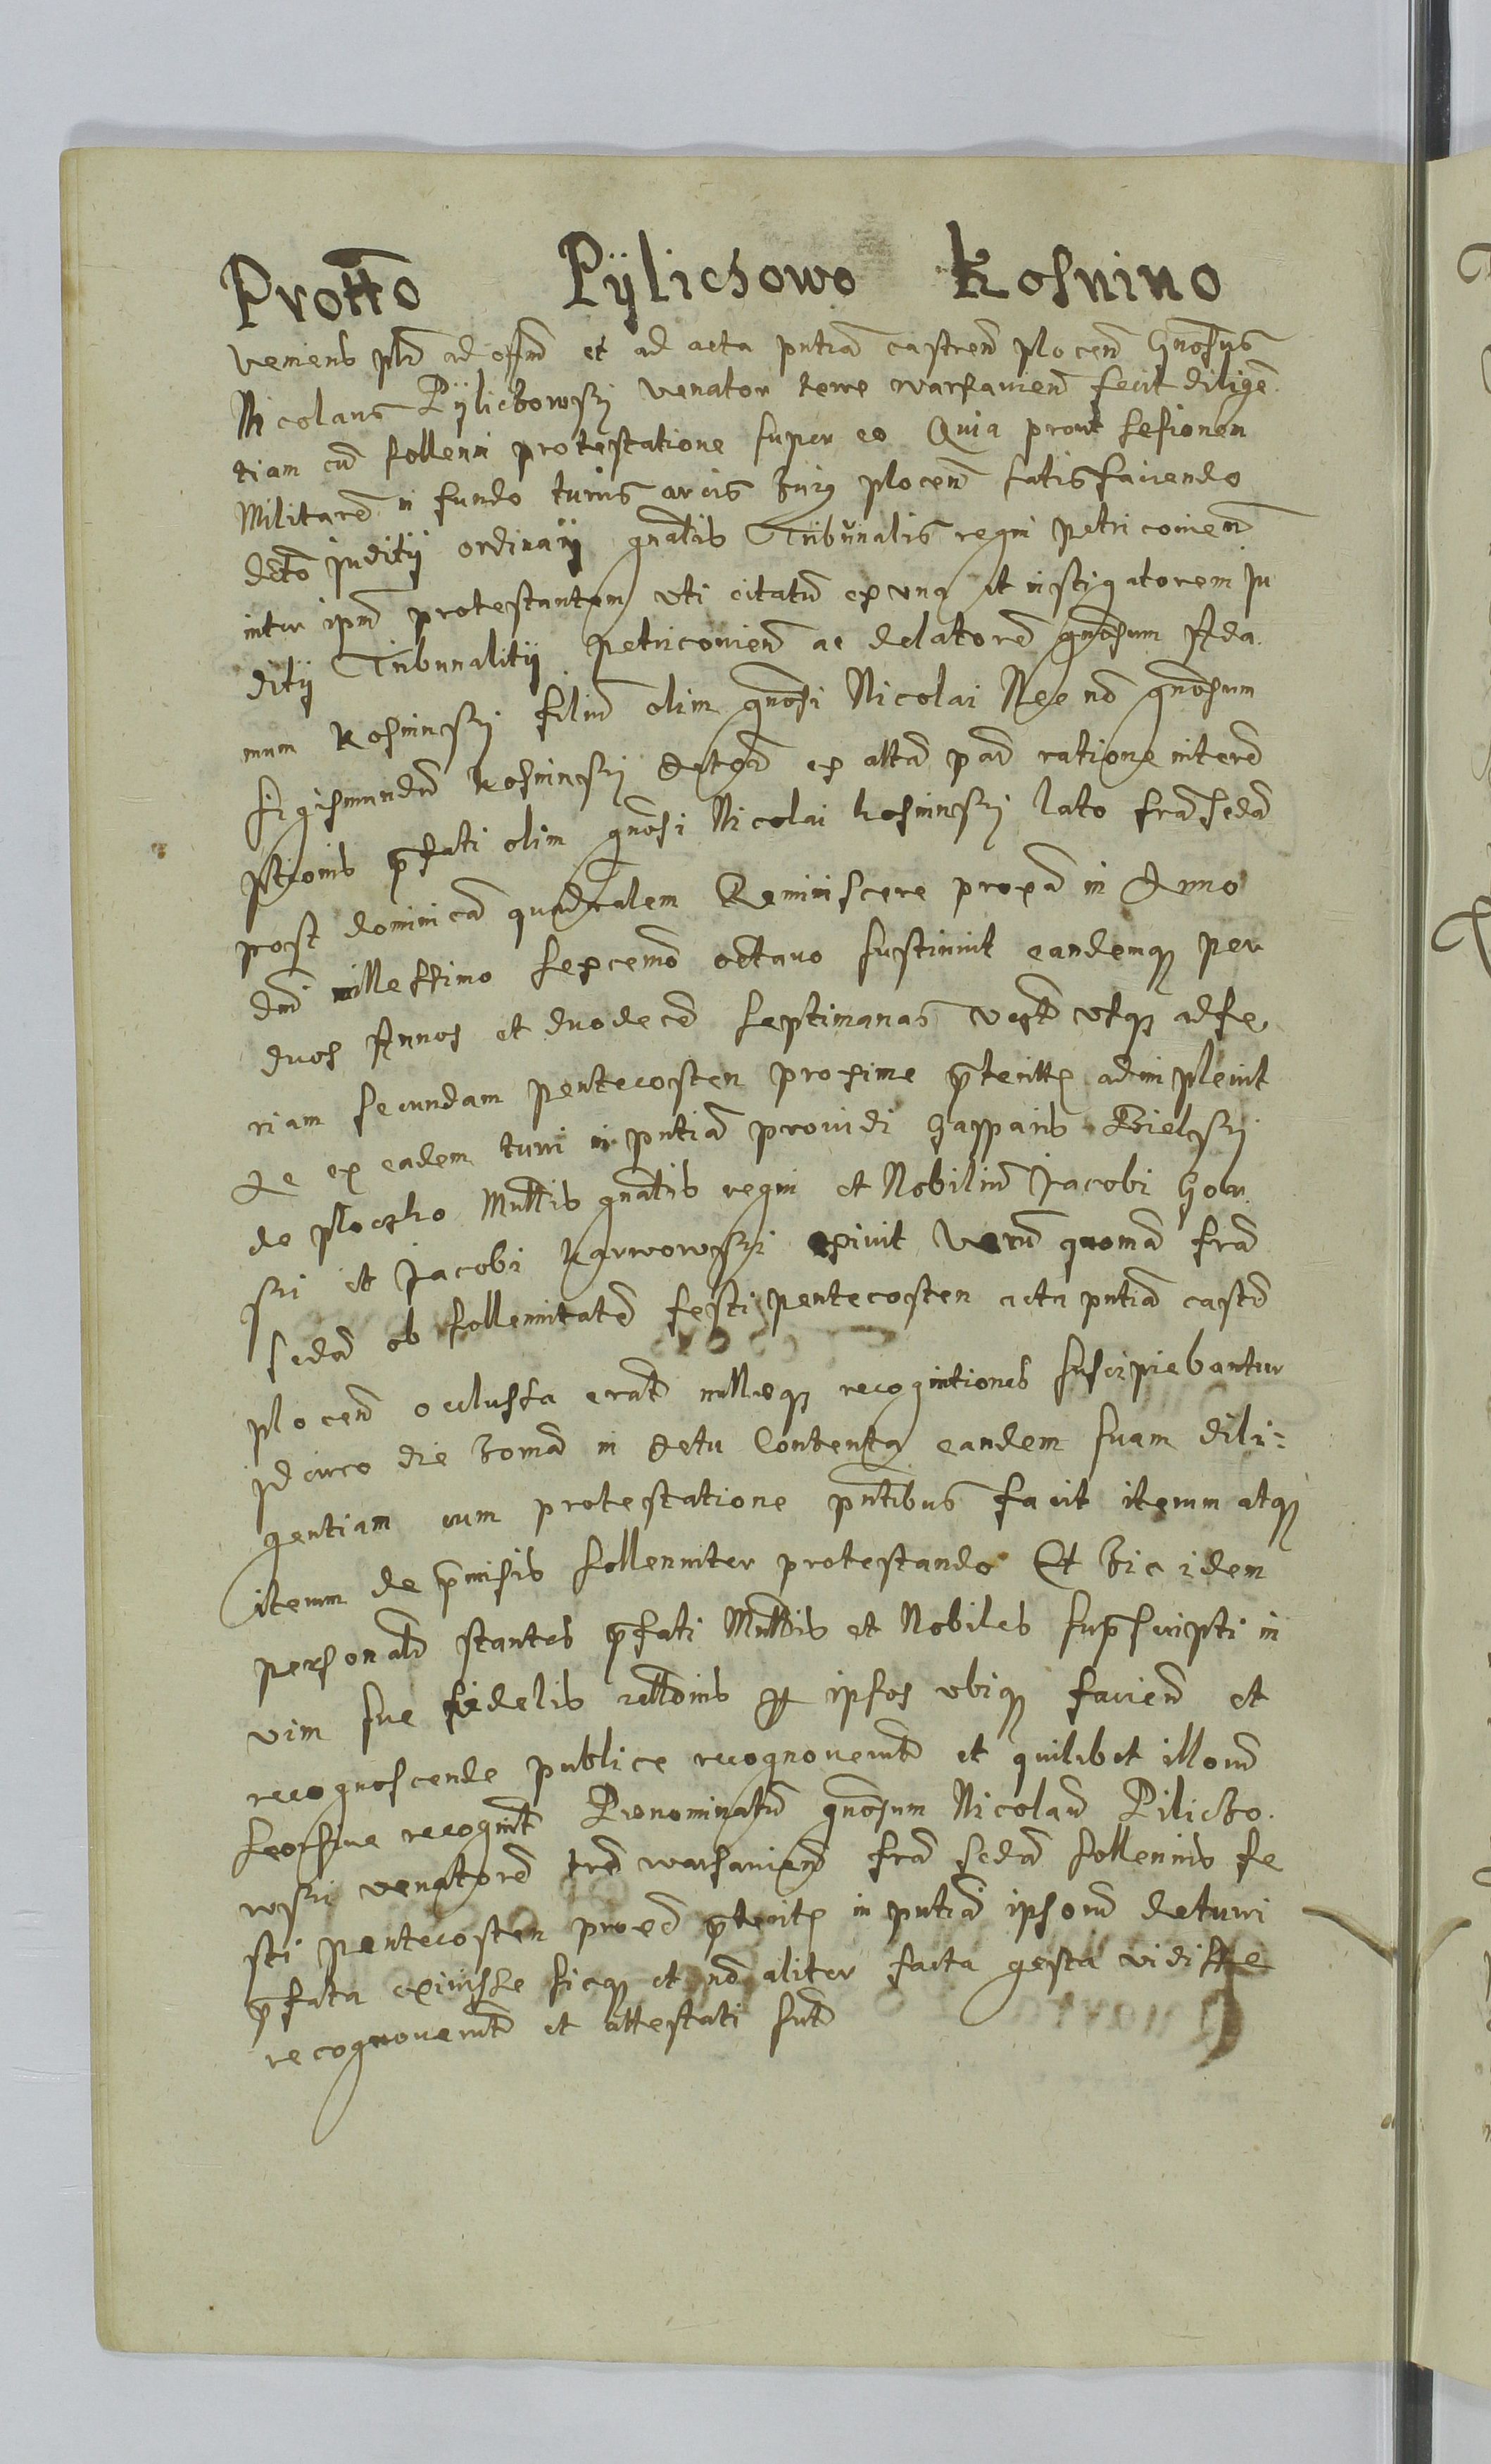 Protto Pÿlichowo Kosnino
Veniens plr ad offm et ad acta pntia castren plocen Gnosus
Nicolaus Pÿlichowsky Venator terre warsauien fecit diligen
tiam cu sollenni protestatione super eo Quia prout sessionem
Militare in fundo turris arcis huius plocen satisfaciendo
decto juditÿ ordinarÿ gnalis Tribunalis regni petricouien
inter ipm protestantem uti citatu ex una et instigatorem ju
ditÿ Tribunalitÿ petricouien ac delatore gnosum Ada
mum Kosminsky filiu olim gnosi Nicolai Nec no gnosum
Sigismundu Kosminsky ex alta par ratione interem
ptionis pfati olim gnosi Nicolai Kosminsky lato fra secda
post dominica quadralem Reminiscere proxa in Anno
dni millessimo sexcemo octauo sustinuit eandemq per
duos Annos et duodece septimanas usq ad fe
riam secundam pentecosten proxime pteritte adimpleuit
Ac ex eadem turri in pntia prouidi Gasparis Bielsky
de ploczko Mnttis gnalis regni et Nobiliu Jacobi Gor
ski et Jacobi Karwowsky exiuit Veru quonia fra
secda ob sollennitate festi pentecosten acta pntia castr
plocen occlussa erat nulleq recognitiones suscipiebantur
jdcirco die homa in Actu Contenta eandem suam dili=
gentiam cum protestatione pntibus facit iterum atq
iterum de pmissis sollenniter protestando Et hic idem
personalr stantes pfati Mnttis et Nobiles supscripti in
vim sue fidelis rettonis per ipsos ubiq facien et
recognoscende publice recognouerut et quilibet illoru
seorsiue recognit Prenominatu gnosum Nicolau Pilicho
wski venatore trre warsauien fra secda sollennis fe
sti pentecosten proxe pterite in pntia ipsoru de turri
pfata exiuisse sicq et no aliter facta gesta vidisse
recognouerut et attestati sut